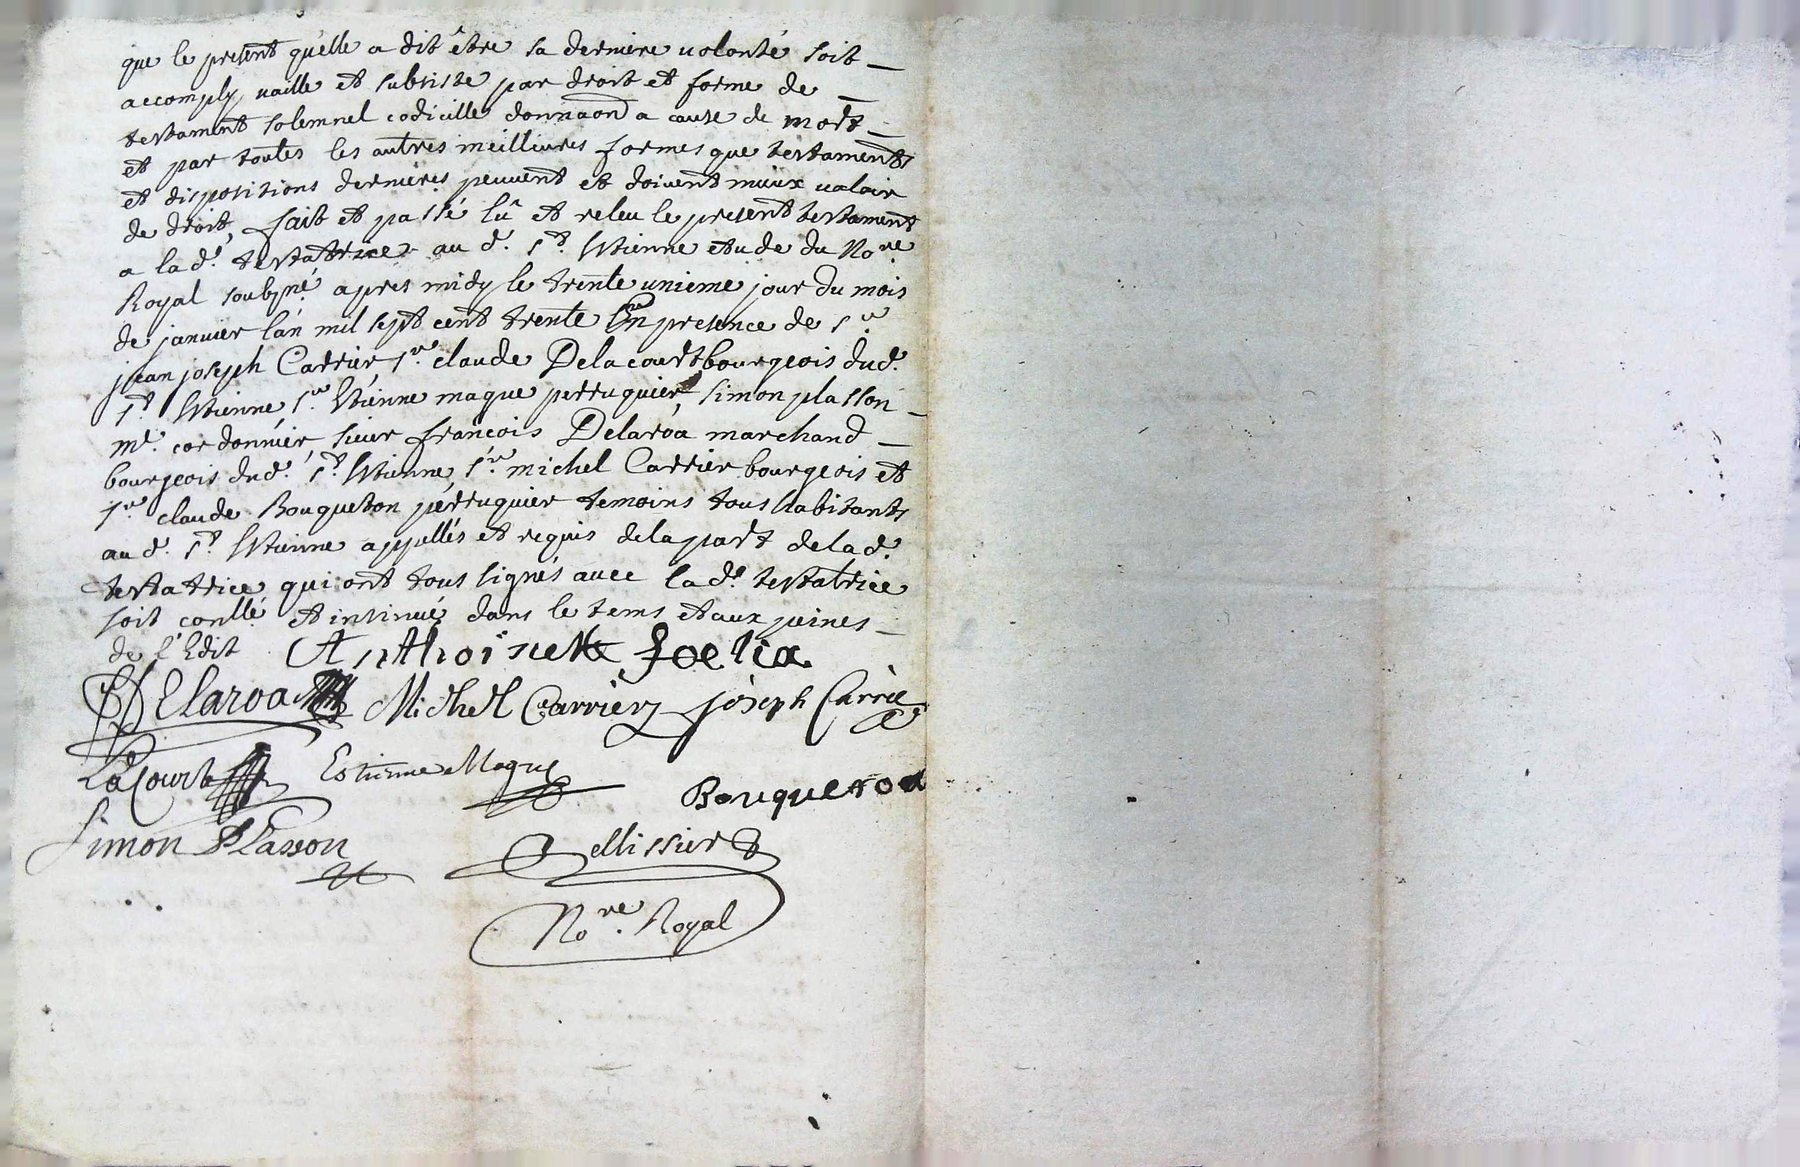 que le present quelle a dit être sa derniere volonté soit
accomply, vaille et subsiste par droit et forme de
testament solemnel codicille donnaon a cause de mort
et par toutes les autres meillieures formes que testaments
et dispositions dernieres peuvent et doivent mieux valoir
de droit, fait et passé lû et releu le present testament
a la d.e testatrice au d. S.t Etienne etude du No.re
Royal soubsné apres midy le trente unieme jour du mois
de janvier lan mil sept cent trente En presence de s.r
jean joseph Carrier s.r claude Delacourt bourgeois dud.
S.t Etienne, s.r Etienne maque perruquier, simon plasson
m.e cordonnier, sieur francois Delaroa marchand
bourgeois dud. S.t Etienne, s.r michel Carrier bourgeois et
s.r claude Bouqueton perruquier temoins tous habitants
au d. S.t Etienne appellés et requis de la part de la d.
testatrice qui ont tous signés avec la d.e testatrice
soit conllé et insinué dans le tems et aux peines
de l'Edit Anthoinette foelix
Delaroa Michel Carrier joseph Carrie
LaCourt Estienne Maque
Bouqueton
Simon Plasson
Tellissier
No.re Royal